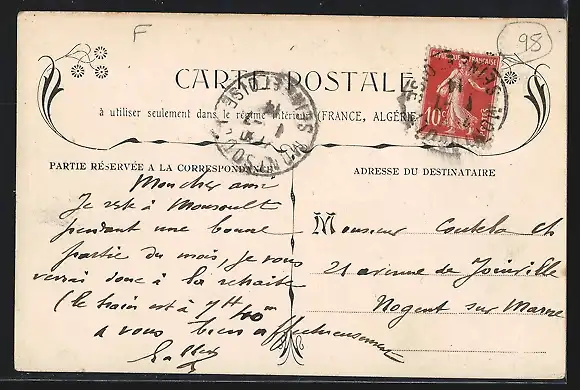 F
98
CARTE POSTALE
à utiliser seulement dans le régime intérieur (FRANCE, ALGÉRIE
10c
PARTIE RÉSERVÉE A LA CORRESPONDANCE
Mon cher ami
Je reste à Monsoult
pendant une bonne
partie du mois, je vous
verrai donc à la retraite
(le train est à 7H
a vous bien affectueusement
ADRESSE DU DESTINATAIRE
Monsieur Coutela Ch
21 avenue de Joinville
Nogent sur Marne